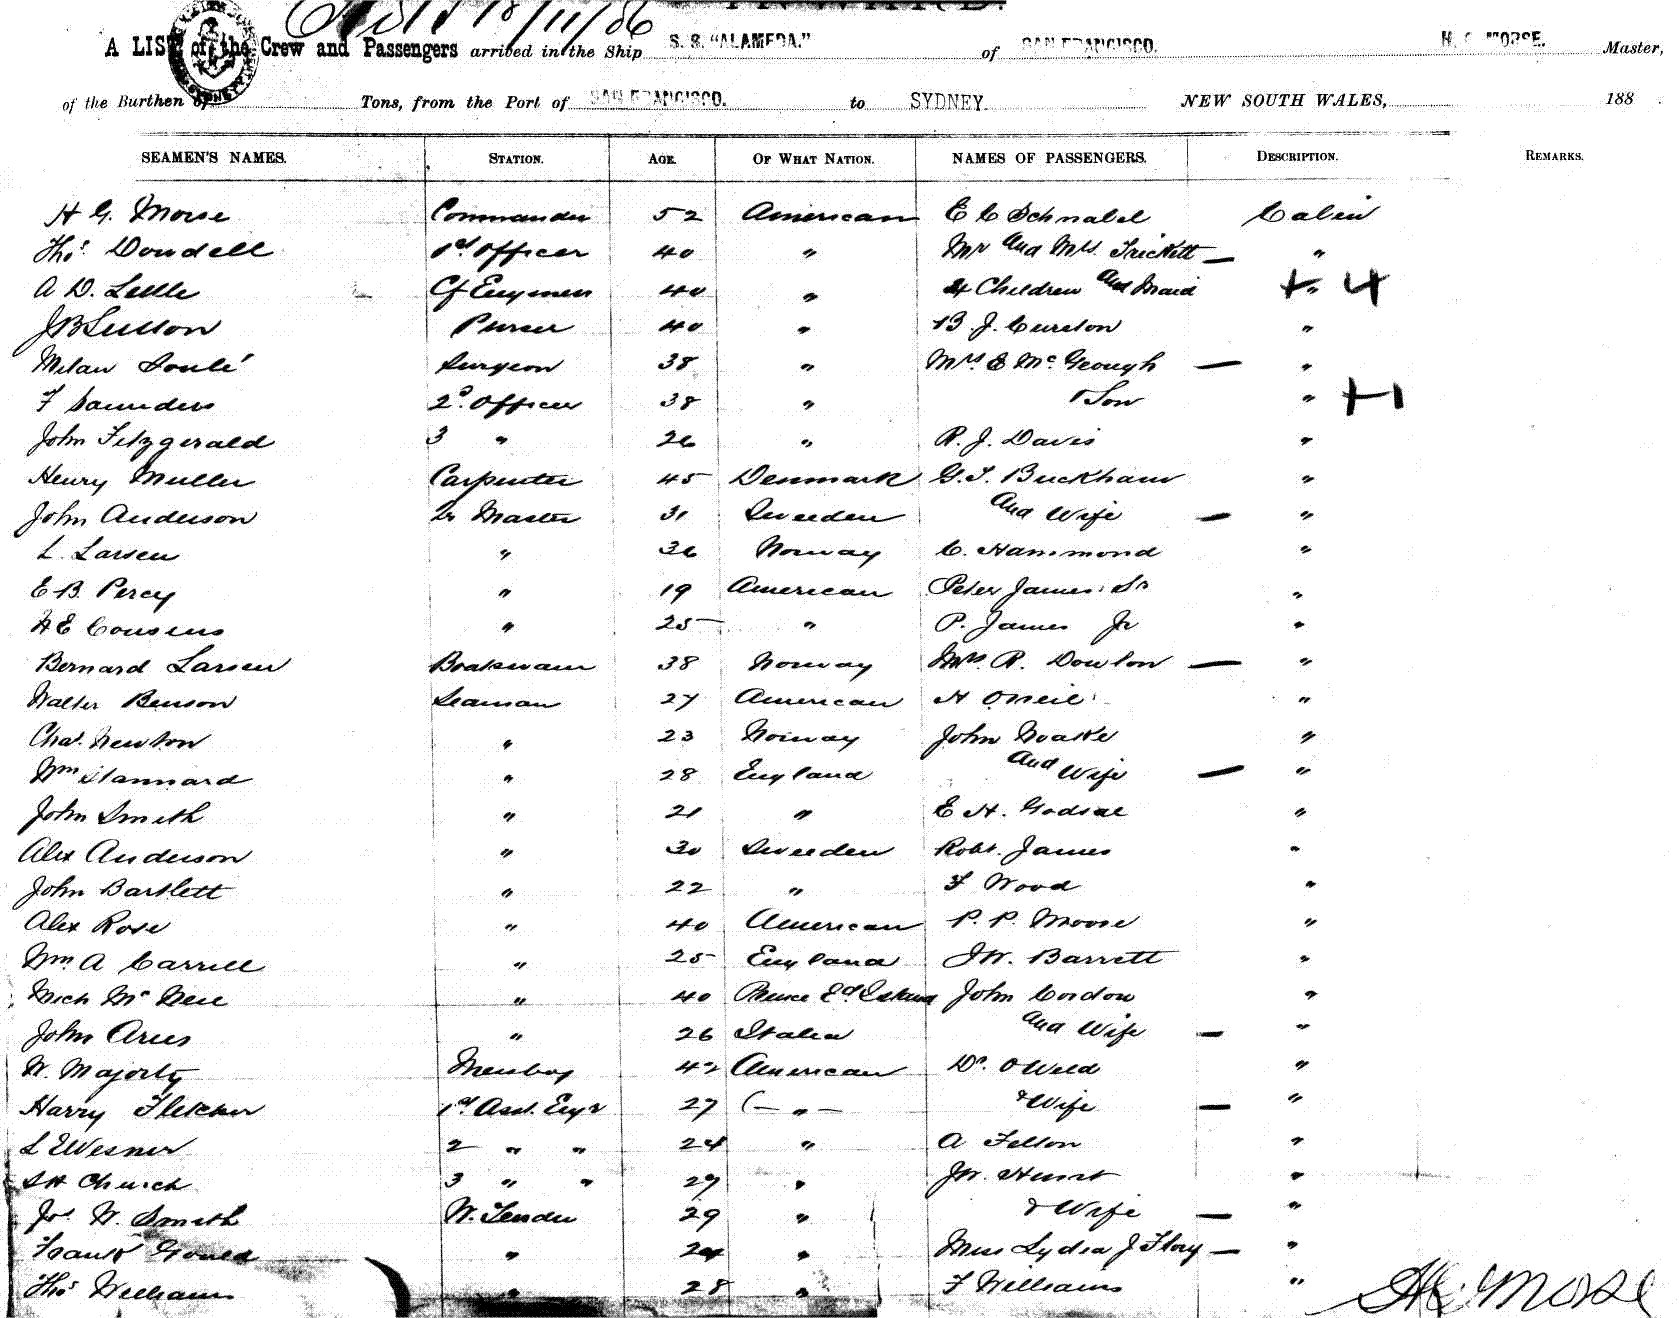 18/11/86
A LIST of the Crew and Passengers arrived in the Ship S. S. "ALAMEDA." of SAN FRANCISCO. H. G. MORSE. Master,
of the Burthen of Tons, from the Port of SAN FRANCISCO. to SYDNEY. NEW SOUTH WALES, 188
SEAMEN'S NAMES. STATION. AGE. OF WHAT NATION. NAMES OF PASSENGERS. DESCRIPTION. REMARKS.
H G. Morse Commander 52 American E C Schnabel Cabin
Thos Dowdell 1st Officer 40 " Mr and Mrs Trickett — "
A D. Little Cf Engineer 40 " 4 Children and Maid " 4
J B Sutton Purser 40 " B. J. Cureton "
Milan Soulé Surgeon 38 " Mrs E McGeough — "
F Saunders 2d Officer 38 " & Son "
John Fitzgerald 3 " 26 " R. J. Davis "
Henry Muller Carpenter 45 Denmark G. S. Buckham "
John Anderson Qr Master 31 Sweeden and Wife — "
L. Larsen " 36 Norway C. Hammond "
E B. Percy " 19 American Peter James Sr "
H E Cousens " 25 " P. James Jr "
Bernard Larsen Boatswain 38 Norway Mrs R. Dowton — "
Walter Benson Seaman 27 American H ONeil "
Chas. Newton " 23 Norway John Noake "
Wm Stannard " 28 England and Wife — "
John Smith " 21 " E H. Godsal "
Alex Anderson " 30 Sweeden Robt. James "
John Bartlett " 22 " F Wood "
Alex Rose " 40 American P. P. Moore "
Wm. A Carrill " 25 England J W. Barrett "
Mich McNeil " 40 Prince Ed Island John Cordon "
John Aries " 26 Italia and Wife — "
W. Majorty Messboy 42 American Dr. O Weld "
Harry Fletcher 1st Asst. Engr 27 (— " — & Wife — "
L E Wesner 2 " " 24 " A Felton "
S H Church 3 " " 29 " J W. Hurst "
Jos W. Smith W. Tender 29 " & Wife — "
Frank Gould " 24 " Miss Lydia J Flory — "
Thos Williams " 28 " F Williams "
H G Morse